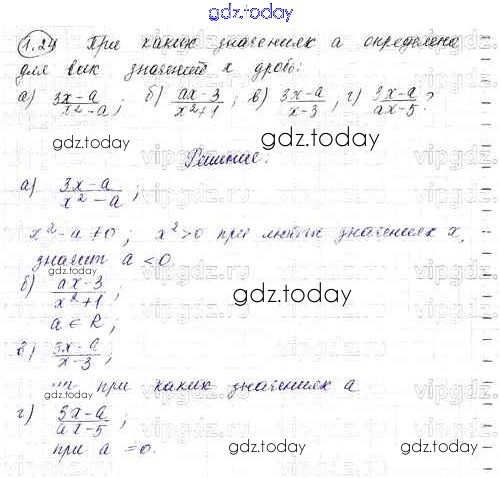 gdz.today
1.24 При каких значениях a определена
для всех значений x дробь:
а) 3x-a / x²-a ; б) ax-3 / x²+1 ; в) 3x-a / x-3 ; г) 3x-a / ax-5 ?
gdz.today
gdz.today
Решение:
а) 3x-a / x²-a ;
x²-a≠0; x²>0 при любых значениях x,
значит a<0.
б) ax-3 / x²+1 ;
gdz.today
a∈R;
в) 3x-a / x-3 ;
ни при каких значениях a
г) 3x-a / ax-5 ;
при a=0.
gdz.today
gdz.today